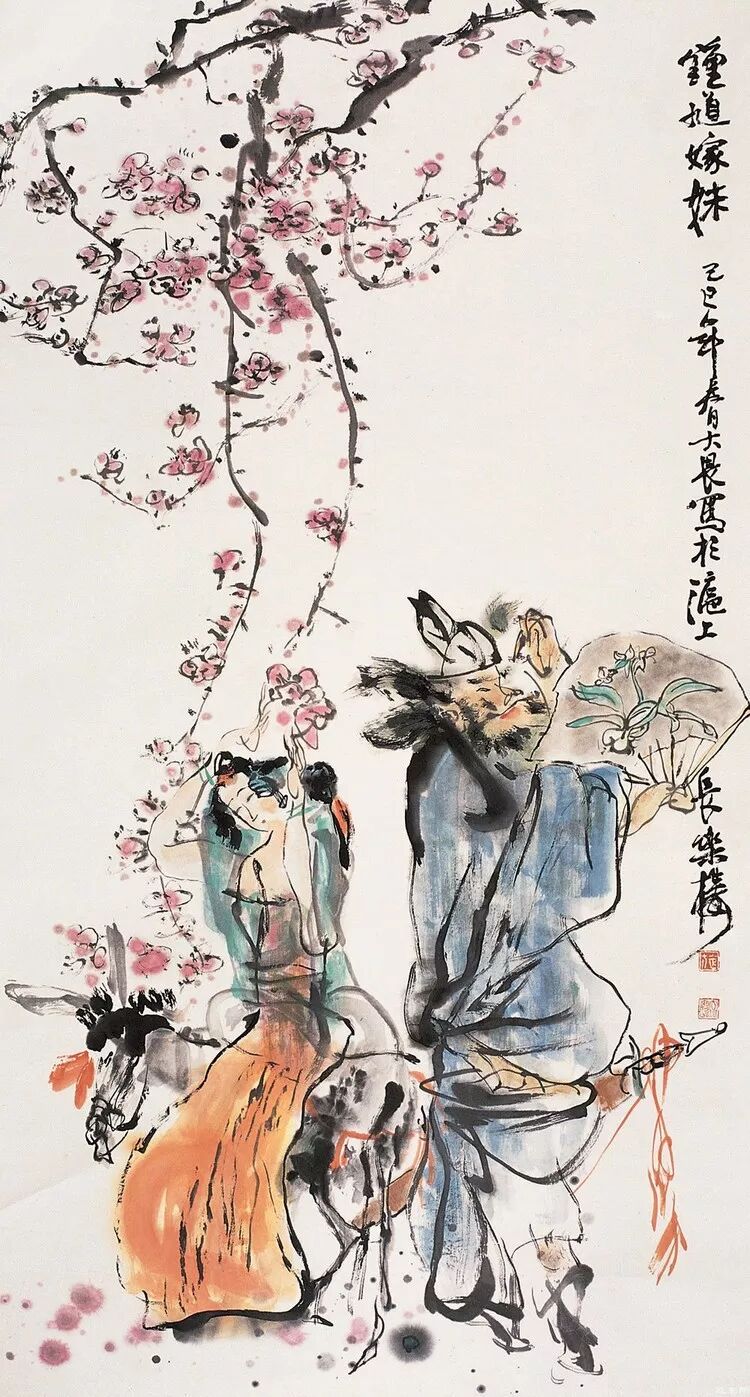 鍾馗嫁妹
己巳年春大畏寫於滬上
長樂樓